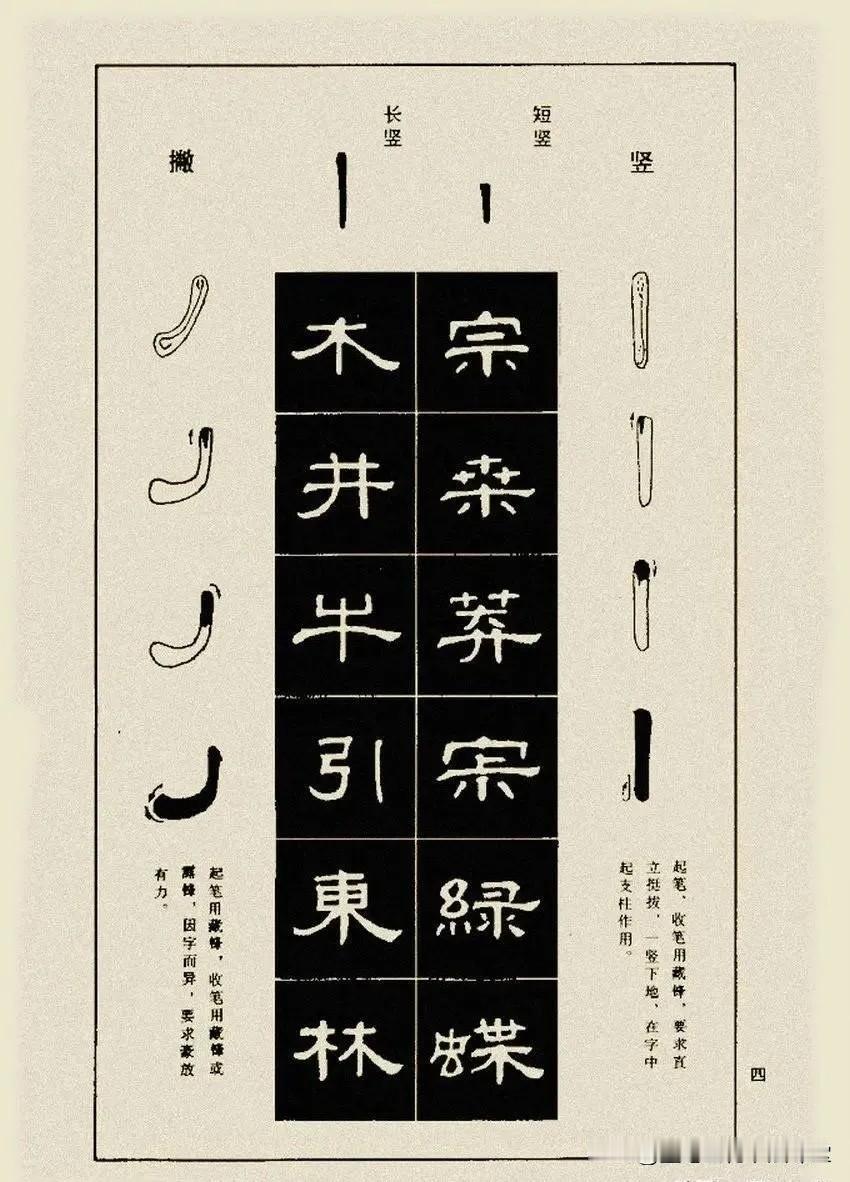 四
竖
起笔、收笔用藏锋,要求直
立挺拔,一竖下地、在字中
起支柱作用。
短竖
宗
桒
莽
宋
緑
蝶
长竖
木
井
牛
引
東
林
撇
起笔用藏锋,收笔用藏锋或
露锋,因字而异,要求豪放
有力。